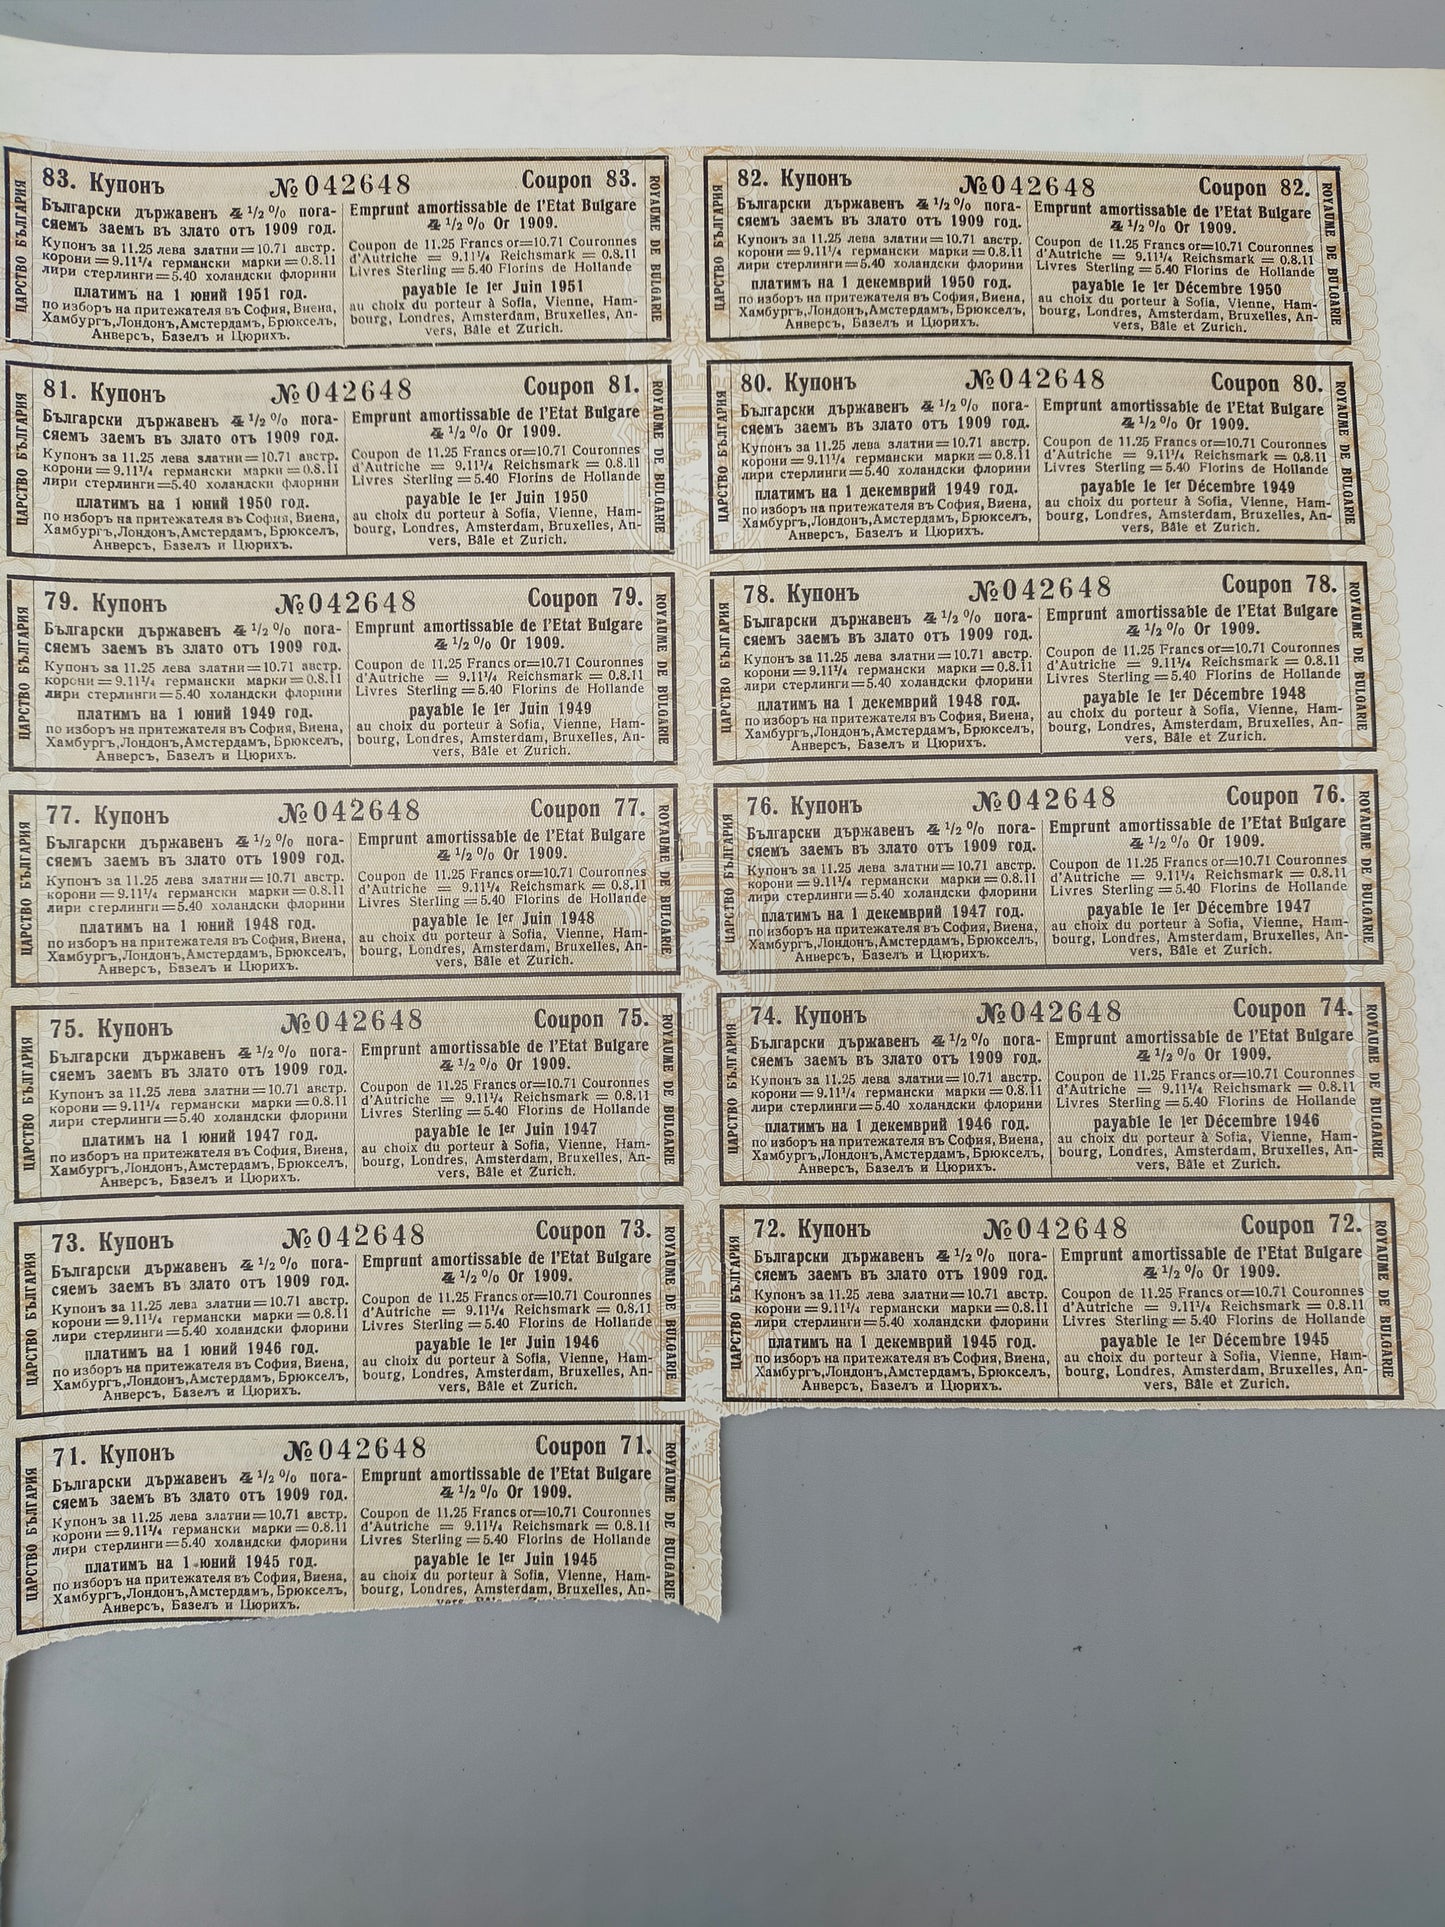 ЦАРСТВО БЪЛГАРИЯ
83. Купонъ №042648 Coupon 83.
Български държавенъ 4 1/2 % пога-
сяемъ заемъ въ злато отъ 1909 год.
Купонъ за 11.25 лева златни=10.71 австр.
корони=9.11¼ германски марки=0.8.11
лири стерлинги=5.40 холандски флорини
платимъ на 1 юний 1951 год.
по изборъ на притежателя въ София, Виена,
Хамбургъ,Лондонъ,Амстердамъ,Брюкселъ,
Анверсъ, Базелъ и Цюрихъ.
Emprunt amortissable de l'Etat Bulgare
4 1/2 % Or 1909.
Coupon de 11.25 Francs or=10.71 Couronnes
d'Autriche = 9.11¼ Reichsmark = 0.8.11
Livres Sterling=5.40 Florins de Hollande
payable le 1er Juin 1951
au choix du porteur à Sofia, Vienne, Ham-
bourg, Londres, Amsterdam, Bruxelles, An-
vers, Bâle et Zurich.
ROYAUME DE BULGARIE
ЦАРСТВО БЪЛГАРИЯ
82. Купонъ №042648 Coupon 82.
Български държавенъ 4 1/2 % пога-
сяемъ заемъ въ злато отъ 1909 год.
Купонъ за 11.25 лева златни=10.71 австр.
корони=9.11¼ германски марки=0.8.11
лири стерлинги=5.40 холандски флорини
платимъ на 1 декемврий 1950 год.
по изборъ на притежателя въ София, Виена,
Хамбургъ,Лондонъ,Амстердамъ,Брюкселъ,
Анверсъ, Базелъ и Цюрихъ.
Emprunt amortissable de l'Etat Bulgare
4 1/2 % Or 1909.
Coupon de 11.25 Francs or=10.71 Couronnes
d'Autriche = 9.11¼ Reichsmark = 0.8.11
Livres Sterling=5.40 Florins de Hollande
payable le 1er Décembre 1950
au choix du porteur à Sofia, Vienne, Ham-
bourg, Londres, Amsterdam, Bruxelles, An-
vers, Bâle et Zurich.
ROYAUME DE BULGARIE
ЦАРСТВО БЪЛГАРИЯ
81. Купонъ №042648 Coupon 81.
Български държавенъ 4 1/2 % пога-
сяемъ заемъ въ злато отъ 1909 год.
Купонъ за 11.25 лева златни=10.71 австр.
корони=9.11¼ германски марки=0.8.11
лири стерлинги=5.40 холандски флорини
платимъ на 1 юний 1950 год.
по изборъ на притежателя въ София, Виена,
Хамбургъ,Лондонъ,Амстердамъ,Брюкселъ,
Анверсъ, Базелъ и Цюрихъ.
Emprunt amortissable de l'Etat Bulgare
4 1/2 % Or 1909.
Coupon de 11.25 Francs or=10.71 Couronnes
d'Autriche = 9.11¼ Reichsmark = 0.8.11
Livres Sterling=5.40 Florins de Hollande
payable le 1er Juin 1950
au choix du porteur à Sofia, Vienne, Ham-
bourg, Londres, Amsterdam, Bruxelles, An-
vers, Bâle et Zurich.
ROYAUME DE BULGARIE
ЦАРСТВО БЪЛГАРИЯ
80. Купонъ №042648 Coupon 80.
Български държавенъ 4 1/2 % пога-
сяемъ заемъ въ злато отъ 1909 год.
Купонъ за 11.25 лева златни=10.71 австр.
корони=9.11¼ германски марки=0.8.11
лири стерлинги=5.40 холандски флорини
платимъ на 1 декемврий 1949 год.
по изборъ на притежателя въ София, Виена,
Хамбургъ,Лондонъ,Амстердамъ,Брюкселъ,
Анверсъ, Базелъ и Цюрихъ.
Emprunt amortissable de l'Etat Bulgare
4 1/2 % Or 1909.
Coupon de 11.25 Francs or=10.71 Couronnes
d'Autriche = 9.11¼ Reichsmark = 0.8.11
Livres Sterling=5.40 Florins de Hollande
payable le 1er Décembre 1949
au choix du porteur à Sofia, Vienne, Ham-
bourg, Londres, Amsterdam, Bruxelles, An-
vers, Bâle et Zurich.
ROYAUME DE BULGARIE
ЦАРСТВО БЪЛГАРИЯ
79. Купонъ №042648 Coupon 79.
Български държавенъ 4 1/2 % пога-
сяемъ заемъ въ злато отъ 1909 год.
Купонъ за 11.25 лева златни=10.71 австр.
корони=9.11¼ германски марки=0.8.11
лири стерлинги=5.40 холандски флорини
платимъ на 1 юний 1949 год.
по изборъ на притежателя въ София, Виена,
Хамбургъ,Лондонъ,Амстердамъ,Брюкселъ,
Анверсъ, Базелъ и Цюрихъ.
Emprunt amortissable de l'Etat Bulgare
4 1/2 % Or 1909.
Coupon de 11.25 Francs or=10.71 Couronnes
d'Autriche = 9.11¼ Reichsmark = 0.8.11
Livres Sterling=5.40 Florins de Hollande
payable le 1er Juin 1949
au choix du porteur à Sofia, Vienne, Ham-
bourg, Londres, Amsterdam, Bruxelles, An-
vers, Bâle et Zurich.
ROYAUME DE BULGARIE
ЦАРСТВО БЪЛГАРИЯ
78. Купонъ №042648 Coupon 78.
Български държавенъ 4 1/2 % пога-
сяемъ заемъ въ злато отъ 1909 год.
Купонъ за 11.25 лева златни=10.71 австр.
корони=9.11¼ германски марки=0.8.11
лири стерлинги=5.40 холандски флорини
платимъ на 1 декемврий 1948 год.
по изборъ на притежателя въ София, Виена,
Хамбургъ,Лондонъ,Амстердамъ,Брюкселъ,
Анверсъ, Базелъ и Цюрихъ.
Emprunt amortissable de l'Etat Bulgare
4 1/2 % Or 1909.
Coupon de 11.25 Francs or=10.71 Couronnes
d'Autriche = 9.11¼ Reichsmark = 0.8.11
Livres Sterling=5.40 Florins de Hollande
payable le 1er Décembre 1948
au choix du porteur à Sofia, Vienne, Ham-
bourg, Londres, Amsterdam, Bruxelles, An-
vers, Bâle et Zurich.
ROYAUME DE BULGARIE
ЦАРСТВО БЪЛГАРИЯ
77. Купонъ №042648 Coupon 77.
Български държавенъ 4 1/2 % пога-
сяемъ заемъ въ злато отъ 1909 год.
Купонъ за 11.25 лева златни=10.71 австр.
корони=9.11¼ германски марки=0.8.11
лири стерлинги=5.40 холандски флорини
платимъ на 1 юний 1948 год.
по изборъ на притежателя въ София, Виена,
Хамбургъ,Лондонъ,Амстердамъ,Брюкселъ,
Анверсъ, Базелъ и Цюрихъ.
Emprunt amortissable de l'Etat Bulgare
4 1/2 % Or 1909.
Coupon de 11.25 Francs or=10.71 Couronnes
d'Autriche = 9.11¼ Reichsmark = 0.8.11
Livres Sterling=5.40 Florins de Hollande
payable le 1er Juin 1948
au choix du porteur à Sofia, Vienne, Ham-
bourg, Londres, Amsterdam, Bruxelles, An-
vers, Bâle et Zurich.
ROYAUME DE BULGARIE
ЦАРСТВО БЪЛГАРИЯ
76. Купонъ №042648 Coupon 76.
Български държавенъ 4 1/2 % пога-
сяемъ заемъ въ злато отъ 1909 год.
Купонъ за 11.25 лева златни=10.71 австр.
корони=9.11¼ германски марки=0.8.11
лири стерлинги=5.40 холандски флорини
платимъ на 1 декемврий 1947 год.
по изборъ на притежателя въ София, Виена,
Хамбургъ,Лондонъ,Амстердамъ,Брюкселъ,
Анверсъ, Базелъ и Цюрихъ.
Emprunt amortissable de l'Etat Bulgare
4 1/2 % Or 1909.
Coupon de 11.25 Francs or=10.71 Couronnes
d'Autriche = 9.11¼ Reichsmark = 0.8.11
Livres Sterling=5.40 Florins de Hollande
payable le 1er Décembre 1947
au choix du porteur à Sofia, Vienne, Ham-
bourg, Londres, Amsterdam, Bruxelles, An-
vers, Bâle et Zurich.
ROYAUME DE BULGARIE
ЦАРСТВО БЪЛГАРИЯ
75. Купонъ №042648 Coupon 75.
Български държавенъ 4 1/2 % пога-
сяемъ заемъ въ злато отъ 1909 год.
Купонъ за 11.25 лева златни=10.71 австр.
корони=9.11¼ германски марки=0.8.11
лири стерлинги=5.40 холандски флорини
платимъ на 1 юний 1947 год.
по изборъ на притежателя въ София, Виена,
Хамбургъ,Лондонъ,Амстердамъ,Брюкселъ,
Анверсъ, Базелъ и Цюрихъ.
Emprunt amortissable de l'Etat Bulgare
4 1/2 % Or 1909.
Coupon de 11.25 Francs or=10.71 Couronnes
d'Autriche = 9.11¼ Reichsmark = 0.8.11
Livres Sterling=5.40 Florins de Hollande
payable le 1er Juin 1947
au choix du porteur à Sofia, Vienne, Ham-
bourg, Londres, Amsterdam, Bruxelles, An-
vers, Bâle et Zurich.
ROYAUME DE BULGARIE
ЦАРСТВО БЪЛГАРИЯ
74. Купонъ №042648 Coupon 74.
Български държавенъ 4 1/2 % пога-
сяемъ заемъ въ злато отъ 1909 год.
Купонъ за 11.25 лева златни=10.71 австр.
корони=9.11¼ германски марки=0.8.11
лири стерлинги=5.40 холандски флорини
платимъ на 1 декемврий 1946 год.
по изборъ на притежателя въ София, Виена,
Хамбургъ,Лондонъ,Амстердамъ,Брюкселъ,
Анверсъ, Базелъ и Цюрихъ.
Emprunt amortissable de l'Etat Bulgare
4 1/2 % Or 1909.
Coupon de 11.25 Francs or=10.71 Couronnes
d'Autriche = 9.11¼ Reichsmark = 0.8.11
Livres Sterling=5.40 Florins de Hollande
payable le 1er Décembre 1946
au choix du porteur à Sofia, Vienne, Ham-
bourg, Londres, Amsterdam, Bruxelles, An-
vers, Bâle et Zurich.
ROYAUME DE BULGARIE
ЦАРСТВО БЪЛГАРИЯ
73. Купонъ №042648 Coupon 73.
Български държавенъ 4 1/2 % пога-
сяемъ заемъ въ злато отъ 1909 год.
Купонъ за 11.25 лева златни=10.71 австр.
корони=9.11¼ германски марки=0.8.11
лири стерлинги=5.40 холандски флорини
платимъ на 1 юний 1946 год.
по изборъ на притежателя въ София, Виена,
Хамбургъ,Лондонъ,Амстердамъ,Брюкселъ,
Анверсъ, Базелъ и Цюрихъ.
Emprunt amortissable de l'Etat Bulgare
4 1/2 % Or 1909.
Coupon de 11.25 Francs or=10.71 Couronnes
d'Autriche = 9.11¼ Reichsmark = 0.8.11
Livres Sterling=5.40 Florins de Hollande
payable le 1er Juin 1946
au choix du porteur à Sofia, Vienne, Ham-
bourg, Londres, Amsterdam, Bruxelles, An-
vers, Bâle et Zurich.
ROYAUME DE BULGARIE
ЦАРСТВО БЪЛГАРИЯ
72. Купонъ №042648 Coupon 72.
Български държавенъ 4 1/2 % пога-
сяемъ заемъ въ злато отъ 1909 год.
Купонъ за 11.25 лева златни=10.71 австр.
корони=9.11¼ германски марки=0.8.11
лири стерлинги=5.40 холандски флорини
платимъ на 1 декемврий 1945 год.
по изборъ на притежателя въ София, Виена,
Хамбургъ,Лондонъ,Амстердамъ,Брюкселъ,
Анверсъ, Базелъ и Цюрихъ.
Emprunt amortissable de l'Etat Bulgare
4 1/2 % Or 1909.
Coupon de 11.25 Francs or=10.71 Couronnes
d'Autriche = 9.11¼ Reichsmark = 0.8.11
Livres Sterling=5.40 Florins de Hollande
payable le 1er Décembre 1945
au choix du porteur à Sofia, Vienne, Ham-
bourg, Londres, Amsterdam, Bruxelles, An-
vers, Bâle et Zurich.
ROYAUME DE BULGARIE
ЦАРСТВО БЪЛГАРИЯ
71. Купонъ №042648 Coupon 71.
Български държавенъ 4 1/2 % пога-
сяемъ заемъ въ злато отъ 1909 год.
Купонъ за 11.25 лева златни=10.71 австр.
корони=9.11¼ германски марки=0.8.11
лири стерлинги=5.40 холандски флорини
платимъ на 1 юний 1945 год.
по изборъ на притежателя въ София, Виена,
Хамбургъ,Лондонъ,Амстердамъ,Брюкселъ,
Анверсъ, Базелъ и Цюрихъ.
Emprunt amortissable de l'Etat Bulgare
4 1/2 % Or 1909.
Coupon de 11.25 Francs or=10.71 Couronnes
d'Autriche = 9.11¼ Reichsmark = 0.8.11
Livres Sterling=5.40 Florins de Hollande
payable le 1er Juin 1945
au choix du porteur à Sofia, Vienne, Ham-
bourg, Londres, Amsterdam, Bruxelles, An-
ROYAUME DE BULGARIE